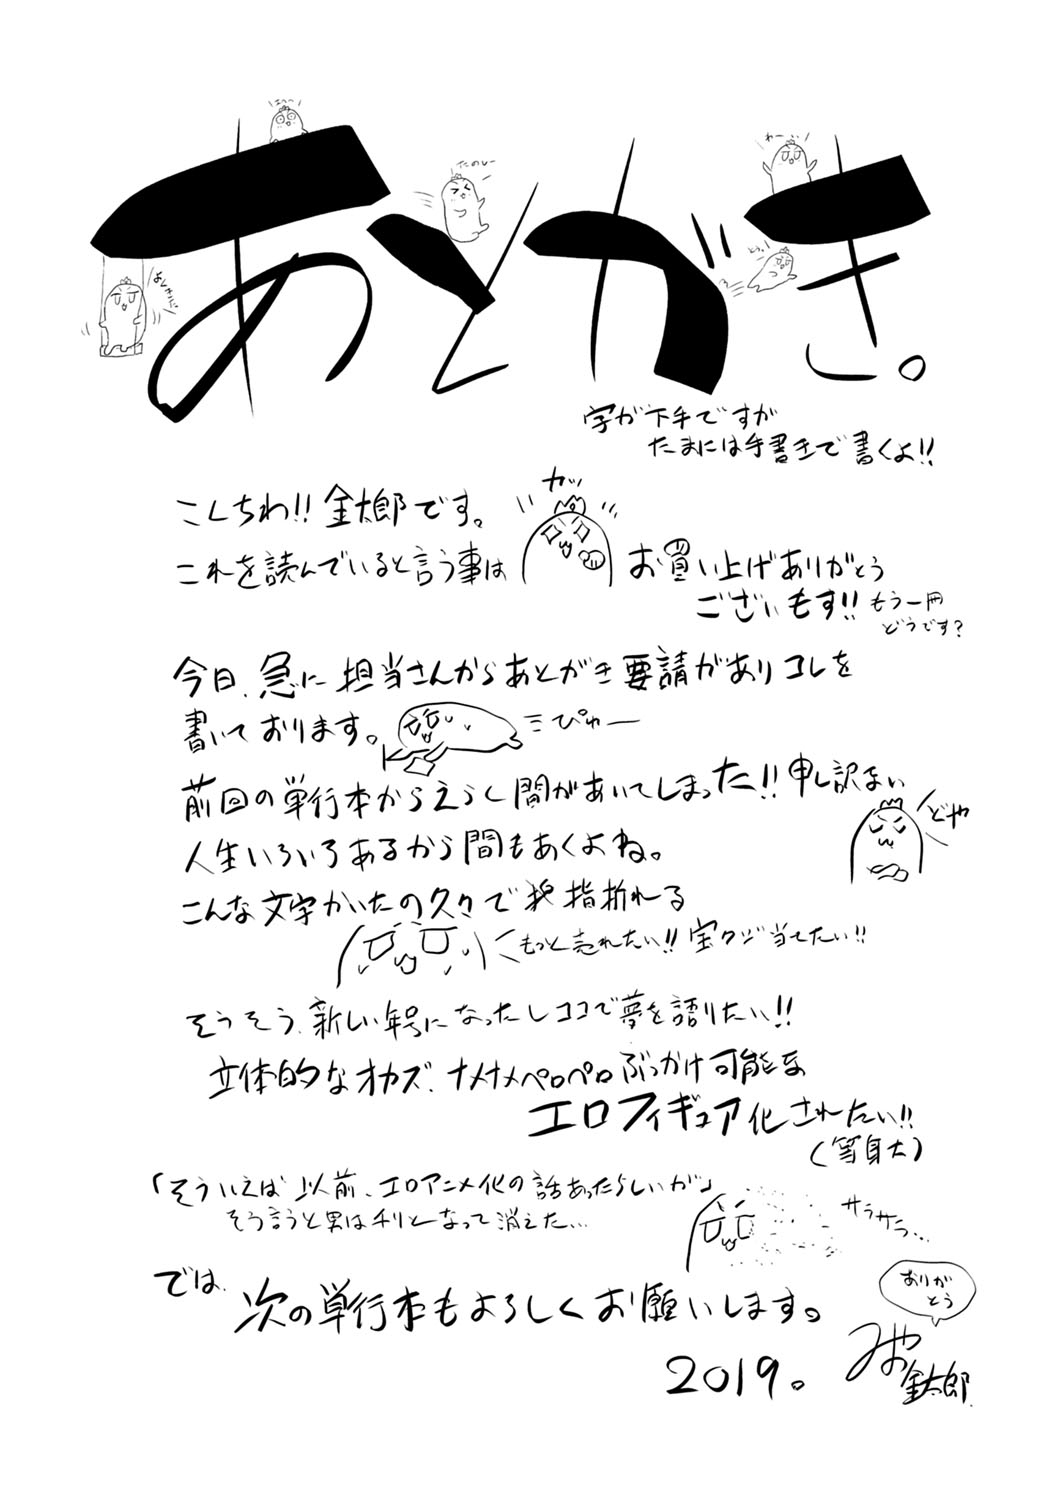 はうっ
たのしー
わーぶ
あとがき。
とぅっ
字が下手ですが
たまには手書きで書くよ!!
こんちわ!!金太郎です。
カッ
これを読んでいると言う事は
お買い上げありがとう
ございもす!!
もう一冊
どうです?
今日、急に担当さんからあとがき要請がありコレを
書いております。
ミぴゅー
前回の単行本からえらく間があいてしまった!!申し訳ない
どや
人生いろいろあるから間もあくよね。
こんな文字かいたの久々で 指折れる
もっと売れたい!!宝クジ当てたい!!
そうそう、新しい年号になったしココで夢を語りたい!!
立体的なオカズ、ナメナメペロペロぶっかけ可能な
エロフィギュア化されたい!!
(等身大)
「そういえば以前、エロアニメ化の話あったらしいが」
そう言うと男はチリとなって消えた…
サラサラ…
では、
次の単行本もよろしくお願いします。
ありがとう
2019。
みやお
金太郎.